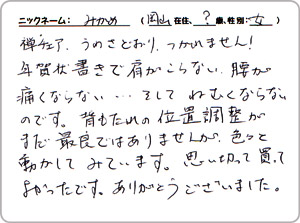 ニックネーム： みかめ （岡山在住、？歳、性別：女）
禅チェア、うわさどおり、つかれません！
年賀状書きで肩がこらない、腰が
痛くならない…そして ねむくならない
のです。背もたれの位置調整が
まだ最良ではありませんが、色々と
動かしてみています。思い切って買って
よかったです。ありがとうございました。